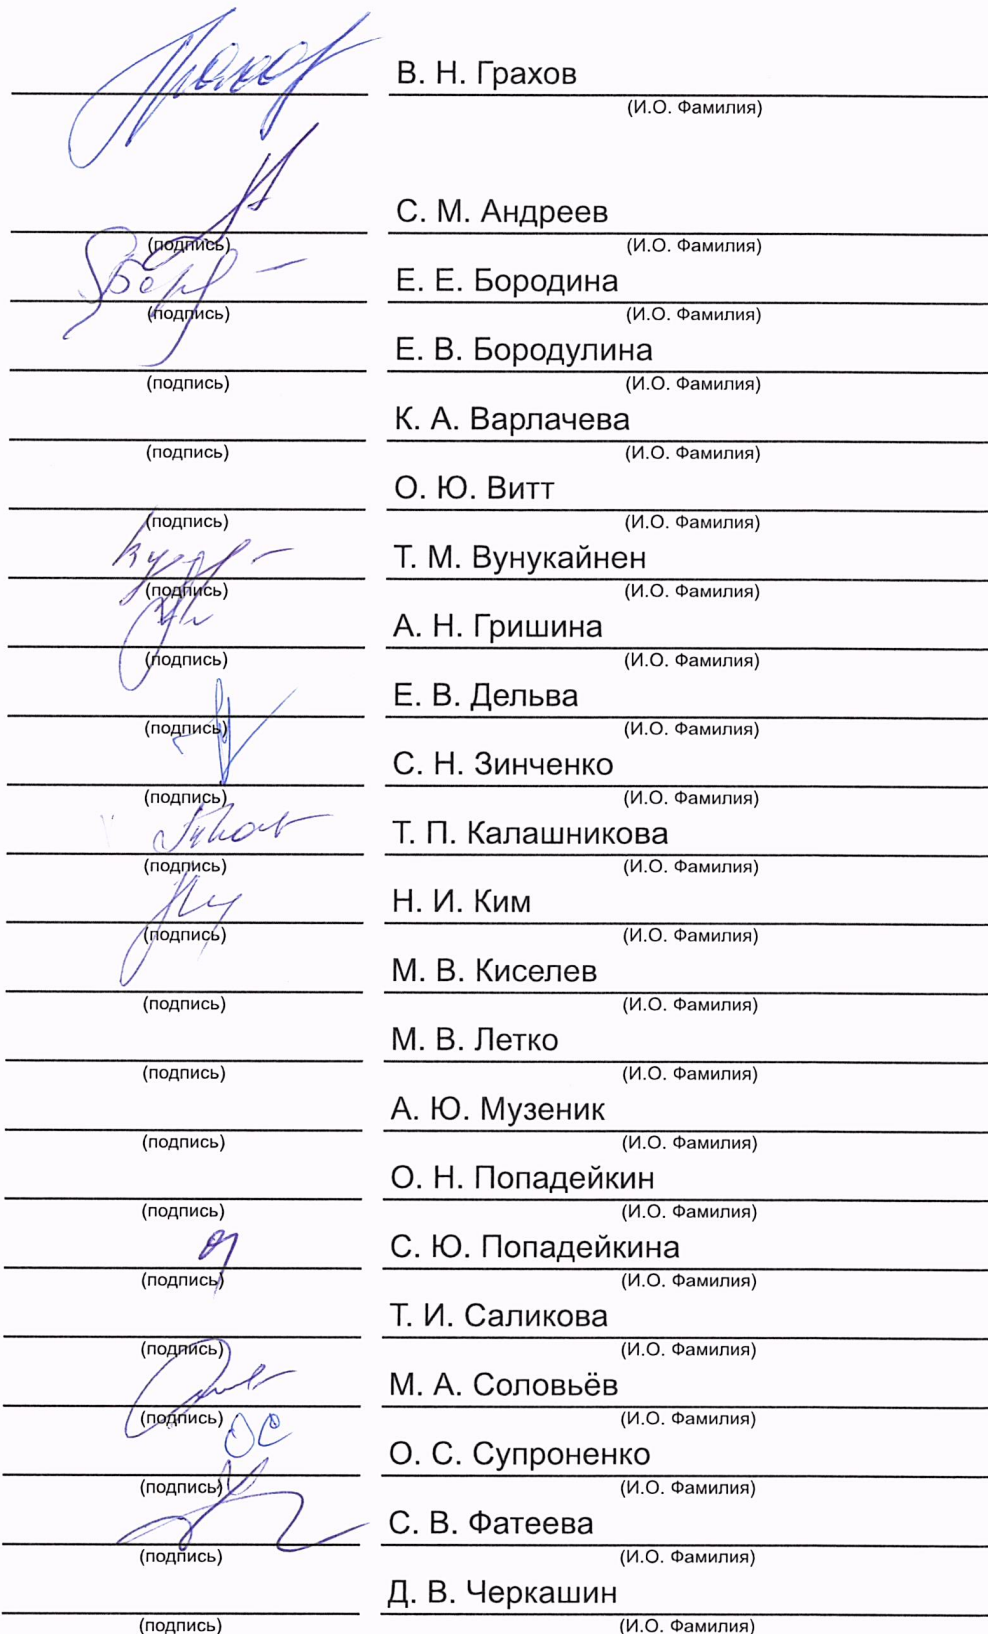 В. Н. Грахов
(И.О. Фамилия)
С. М. Андреев
(подпись) (И.О. Фамилия)
Е. Е. Бородина
(подпись) (И.О. Фамилия)
Е. В. Бородулина
(подпись) (И.О. Фамилия)
К. А. Варлачева
(подпись) (И.О. Фамилия)
О. Ю. Витт
(подпись) (И.О. Фамилия)
Т. М. Вунукайнен
(подпись) (И.О. Фамилия)
А. Н. Гришина
(подпись) (И.О. Фамилия)
Е. В. Дельва
(подпись) (И.О. Фамилия)
С. Н. Зинченко
(подпись) (И.О. Фамилия)
Т. П. Калашникова
(подпись) (И.О. Фамилия)
Н. И. Ким
(подпись) (И.О. Фамилия)
М. В. Киселев
(подпись) (И.О. Фамилия)
М. В. Летко
(подпись) (И.О. Фамилия)
А. Ю. Музеник
(подпись) (И.О. Фамилия)
О. Н. Попадейкин
(подпись) (И.О. Фамилия)
С. Ю. Попадейкина
(подпись) (И.О. Фамилия)
Т. И. Саликова
(подпись) (И.О. Фамилия)
М. А. Соловьёв
(подпись) (И.О. Фамилия)
О. С. Супроненко
(подпись) (И.О. Фамилия)
С. В. Фатеева
(подпись) (И.О. Фамилия)
Д. В. Черкашин
(подпись) (И.О. Фамилия)